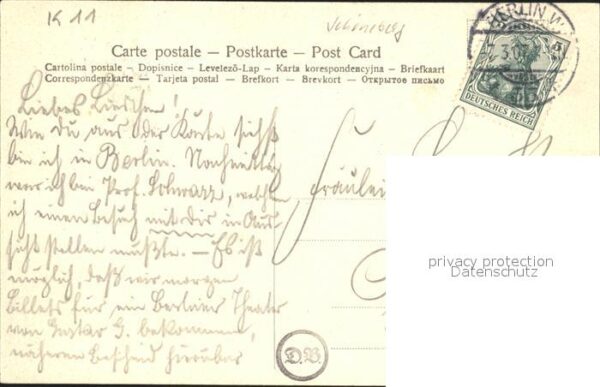 K 11
Schöneberg
BERLIN W.
DEUTSCHES REICH
Carte postale – Postkarte – Post Card
Cartolina postale – Dopisnice – Levelező-Lap – Karta korespondencyjna – Briefkaart
Correspondenzkarte – Tarjeta postal – Brefkort – Brevkort – Открытое письмо
Liebes Lieschen!
Wie du aus der Karte siehst
bin ich in Berlin. Nachmittag
war ich bei Prof. Schwarz, welchem
ich einen Besuch mit dir in Aus-
sicht stellen mußte. – Es ist
möglich, daß wir morgen
Billets für ein Berliner Theater
von Gustav G. bekommen,
näheren Bescheid hierüber
Fräulein
privacy protection
Datenschutz
D.B.